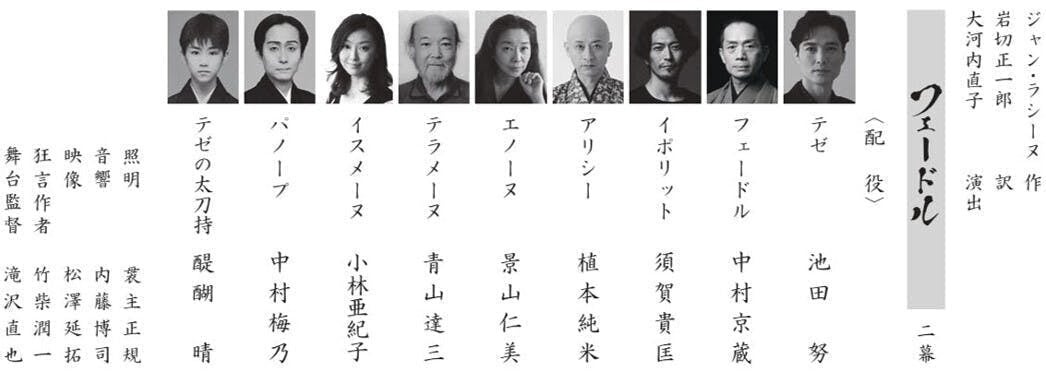 ジャン・ラシーヌ 作
岩切正一郎 訳
大河内直子 演出
フェードル 二幕
〈配役〉
テゼ 池田 努
フェードル 中村京蔵
イポリット 須賀貴匡
アリシー 植本純米
エノーヌ 景山仁美
テラメーヌ 青山達三
イスメーヌ 小林亜紀子
パノープ 中村梅乃
テゼの太刀持 醍醐 晴
照明 裳主正規
音響 内藤博司
映像 松澤延拓
狂言作者 竹柴潤一
舞台監督 滝沢直也